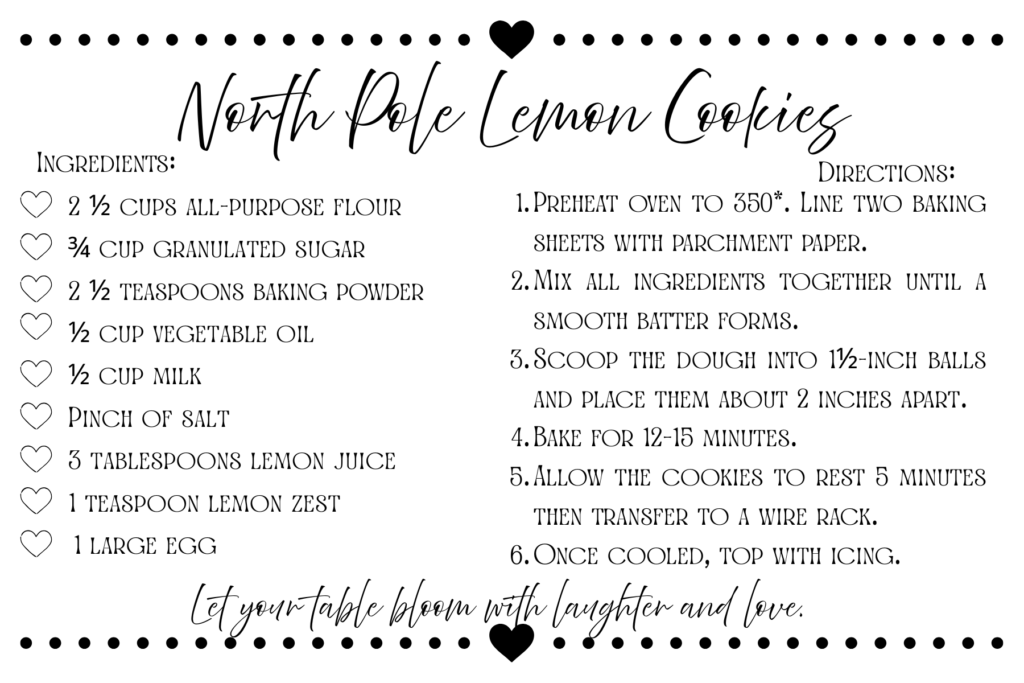 North Pole Lemon Cookies
Ingredients:
2 ½ cups all-purpose flour
¾ cup granulated sugar
2 ½ teaspoons baking powder
½ cup vegetable oil
½ cup milk
Pinch of salt
3 tablespoons lemon juice
1 teaspoon lemon zest
1 large egg
Directions:
1. Preheat oven to 350*. Line two baking
sheets with parchment paper.
2. Mix all ingredients together until a
smooth batter forms.
3. Scoop the dough into 1½-inch balls
and place them about 2 inches apart.
4. Bake for 12-15 minutes.
5. Allow the cookies to rest 5 minutes
then transfer to a wire rack.
6. Once cooled, top with icing.
Let your table bloom with laughter and love.